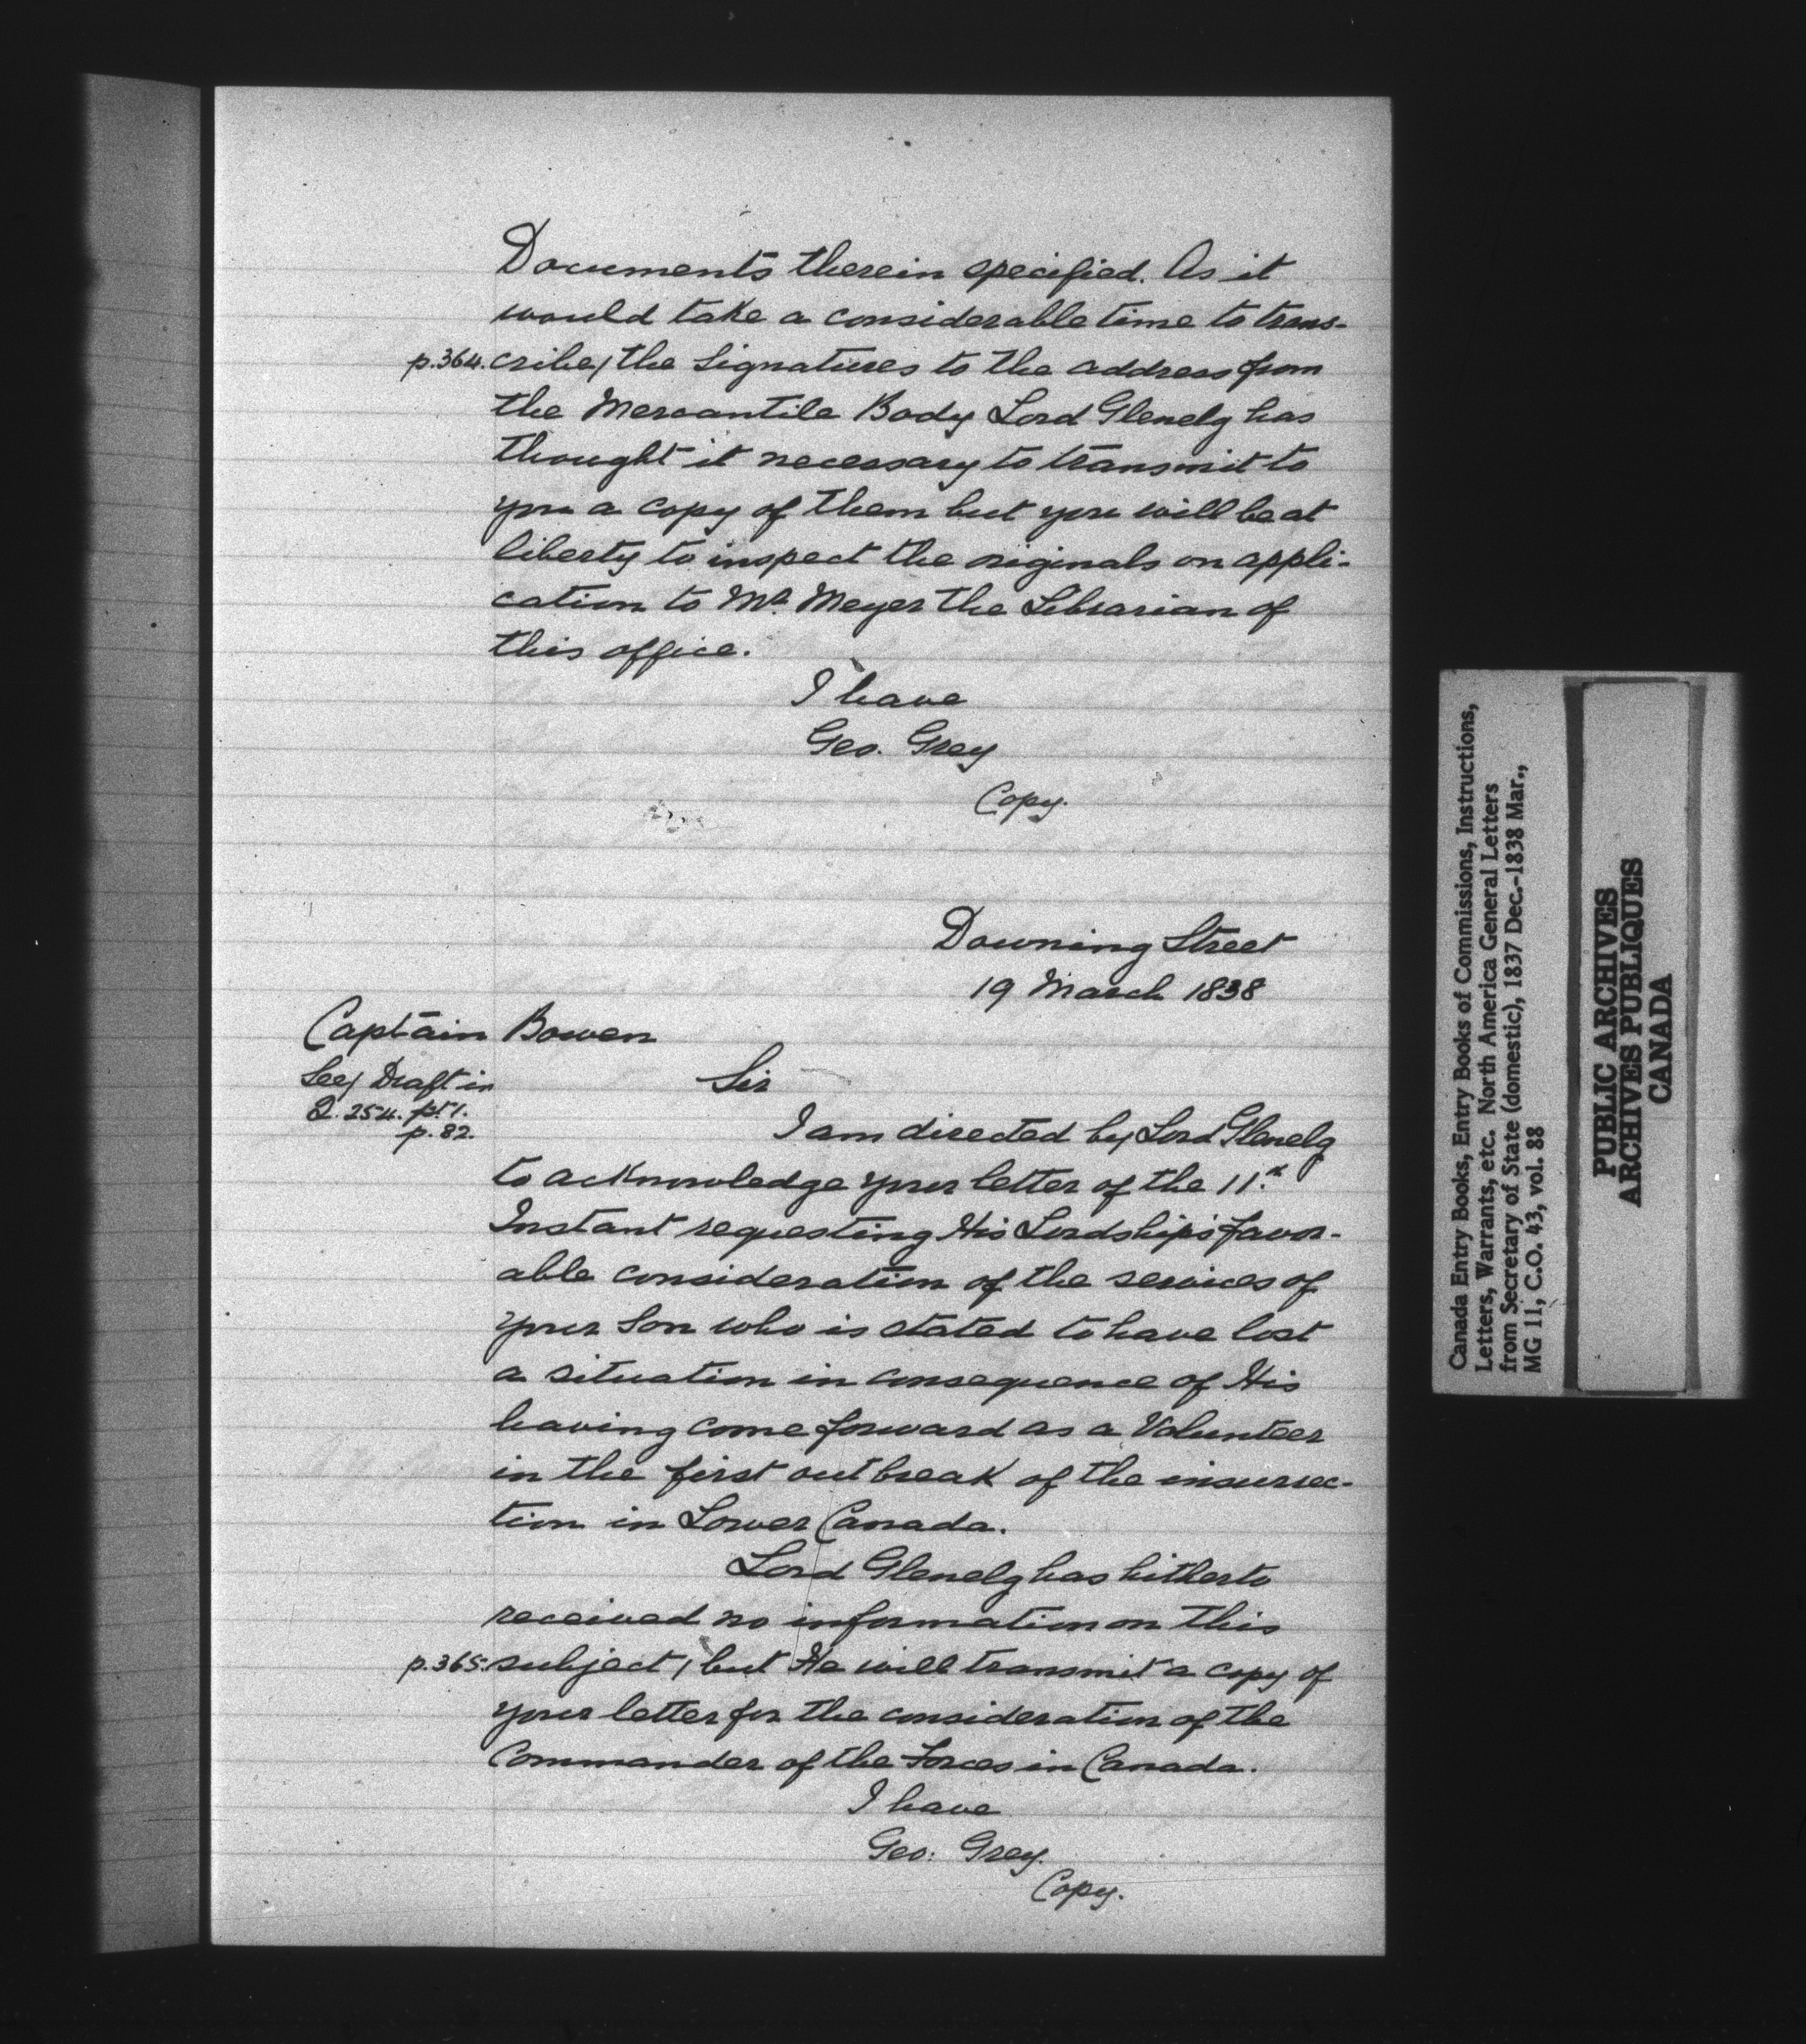 Documents therein specified. As it
would take a considerable time to trans-
p.364. cribe/ the Signatures to the address from
the Mercantile Body Lord Glenelg has
thought it necessary to transmit to
you a copy of them but you will be at
liberty to inspect the originals on appli-
cation to Mr. Meyer the Librarian of
this office.
I have
Geo. Grey
Copy.
Downing Street
19 March 1838
Captain Bowen
See/ Draft in
Q. 254. pt 1.
p. 82.
Sir
I am directed by Lord Glenelg
to acknowledge your letter of the 11.th
Instant requesting His Lordship's favor-
able consideration of the services of
your Son who is stated to have lost
a situation in consequence of His
having come forward as a Volunteer
in the first outbreak of the insurrec-
tion in Lower Canada.
Lord Glenelg has hitherto
received no information on this
p.365. subject/ but He will transmit a copy of
your letter for the consideration of the
Commander of the Forces in Canada.
I have
Geo. Grey.
Copy.
Canada Entry Books, Entry Books of Commissions, Instructions,
Letters, Warrants, etc. North America General Letters
from Secretary of State (domestic), 1837 Dec.-1838 Mar.,
MG 11, C.O. 43, vol. 88
PUBLIC ARCHIVES
ARCHIVES PUBLIQUES
CANADA